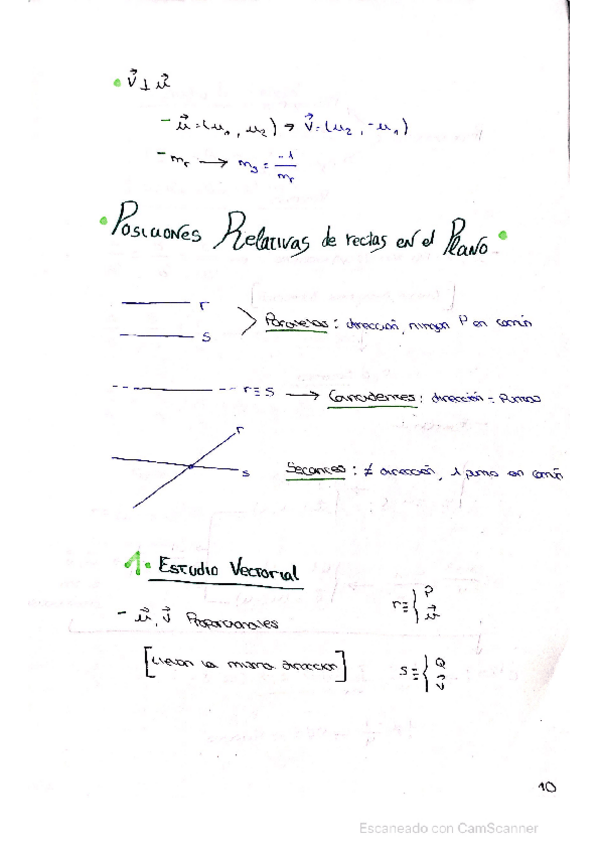 • v⃗ ⊥ u⃗
- u⃗ = (u₁, u₂) → v⃗ = (u₂, -u₁)
- mᵣ → mₛ = -1/mᵣ
• Posiciones Relativas de rectas en el Plano •
r
s
Paralelas: dirección, ningún P en común
r ≡ s → Coincidentes: dirección = Puntos
r
s
Secantes: ≠ dirección, 1 punto en común
1. Estudio Vectorial
- u⃗, v⃗ Proporcionales
[Llevan la misma dirección]
r ≡ { P
u⃗
s ≡ { Q
v⃗
10
Escaneado con CamScanner